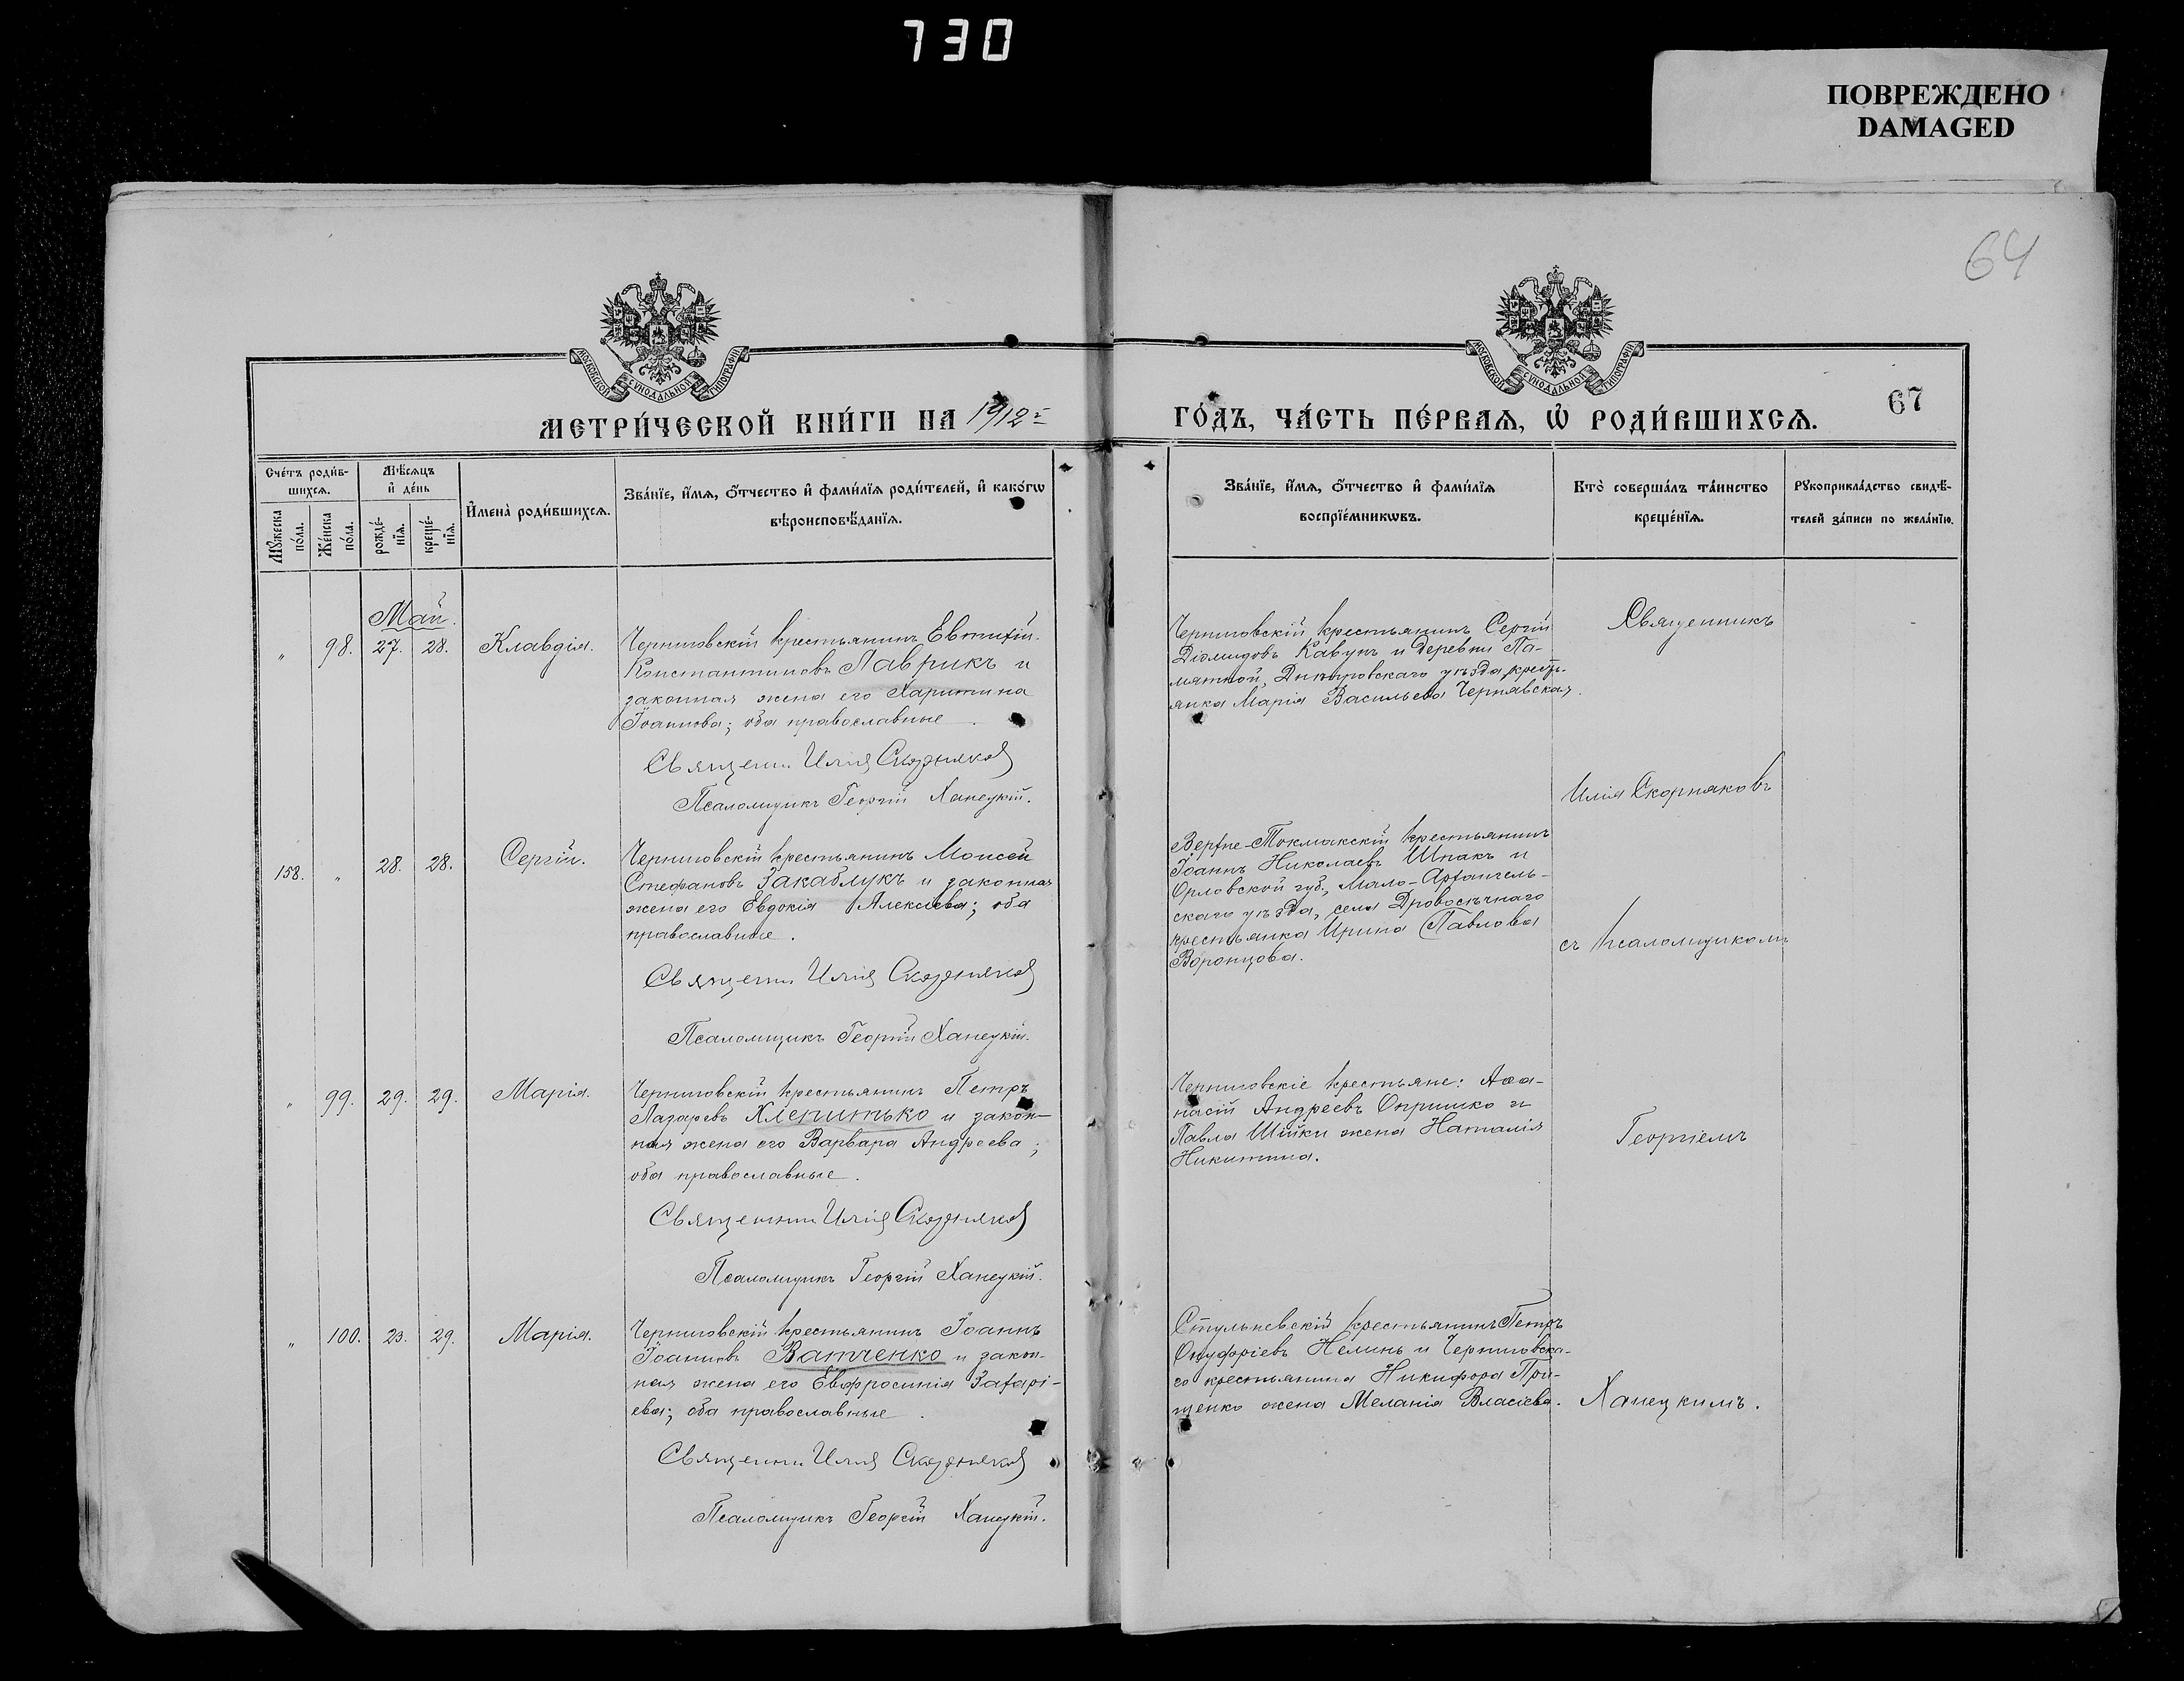 730
ПОВРЕЖДЕНО
DAMAGED
64
МОСКОВСКОЙ СУНОДАЛЬНОЙ ТИПОГРАФІИ
МОСКОВСКОЙ СУНОДАЛЬНОЙ ТИПОГРАФІИ
МЕТРИ́ЧЕСКОЙ КНИ́ГИ НА 1912 г.
ГО́ДЪ, ЧА́СТЬ ПЕ́РВАѦ, Ѡ҆ РОДИ́ВШИХСѦ.
67
Сче́тъ роди́в-
шихсѧ.
Мѣ́сѧцъ
и҆ де́нь
Мꙋ́жеска
по́ла.
Же́нска
по́ла.
рожде́-
нїѧ.
креще́-
нїѧ.
И҆мена̀ роди́вшихсѧ.
Зва́нїе, и҆́мѧ, ѻ҆́тчество и҆ фами́лїѧ роди́телей, и҆ како́гѡ
вѣроисповѣ́данїѧ.
Зва́нїе, и҆́мѧ, ѻ҆́тчество и҆ фами́лїѧ
воспрїе́мникѡвъ.
Кто̀ соверша́лъ та́инство
креще́нїѧ.
Рꙋкоприкла́дство свидѣ́-
телей за́писи по жела́нїю.
Май.
„ 98. 27. 28. Клавдія.
Черниговскій крестьянинъ Евтихій
Константиновъ Лаврикъ и
законная жена его Харитина
Іоаннова; оба православные.
Священн. Илія Скорняковъ
Псаломщикъ Георгій Ханецкій.
Черниговскій крестьянинъ Сергій
Діомидовъ Кавунъ и деревни Па-
мятной, Днѣпровскаго уѣзда, кресть-
янка Марія Васильева Чернявская.
Священникъ
Илія Скорняковъ
158. „ 28. 28. Сергій.
Черниговскій крестьянинъ Моисей
Стефановъ Закаблукъ и законная
жена его Евдокія Алексіева; оба
православные.
Священн. Илія Скорняковъ
Псаломщикъ Георгій Ханецкій.
Верхне-Токмакскій крестьянинъ
Іоаннъ Николаевъ Шпакъ и
Орловской губ., Мало-Архангель-
скаго уѣзда, села Дровосѣчнаго
крестьянка Ирина Павлова
Воронцова.
съ псаломщикомъ
„ 99. 29. 29. Марія.
Черниговскій крестьянинъ Петръ
Лазаревъ Хлепитько и закон-
ная жена его Варвара Андреева;
оба православные.
Священник Илія Скорняковъ
Псаломщикъ Георгій Ханецкій.
Черниговскіе крестьяне: Аѳа-
насій Андреевъ Опришко и
Павла Шійки жена Наталія
Никитина.
Георгіемъ
„ 100. 23. 29. Марія.
Черниговскій крестьянинъ Іоаннъ
Іоанновъ Ватченко и закон-
ная жена его Евфросинія Захарі-
ева; оба православные.
Священн. Илія Скорняковъ
Псаломщикъ Георгій Ханецкій.
Стульневскій крестьянинъ Петръ
Онуфріевъ Нелинъ и Черниговска-
го крестьянина Никифора При-
щенко жена Меланія Власіева.
Ханецкимъ.